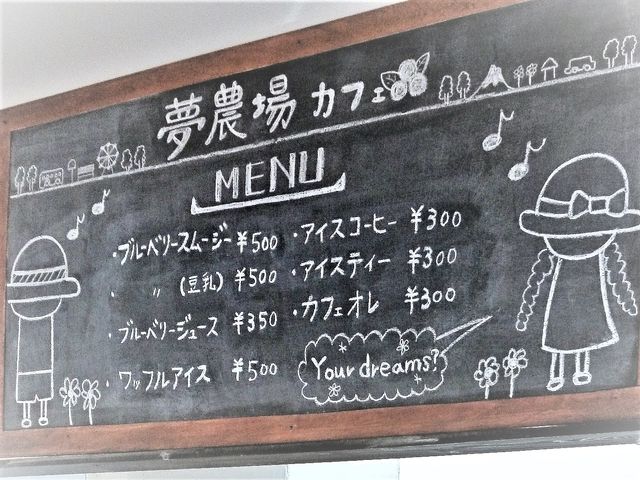 夢農場カフェ
MENU
・ブルーベリースムージー ¥500
・ 〃 (豆乳) ¥500
・ブルーベリージュース ¥350
・ワッフルアイス ¥500
・アイスコーヒー ¥300
・アイスティー ¥300
・カフェオレ ¥300
Your dreams?